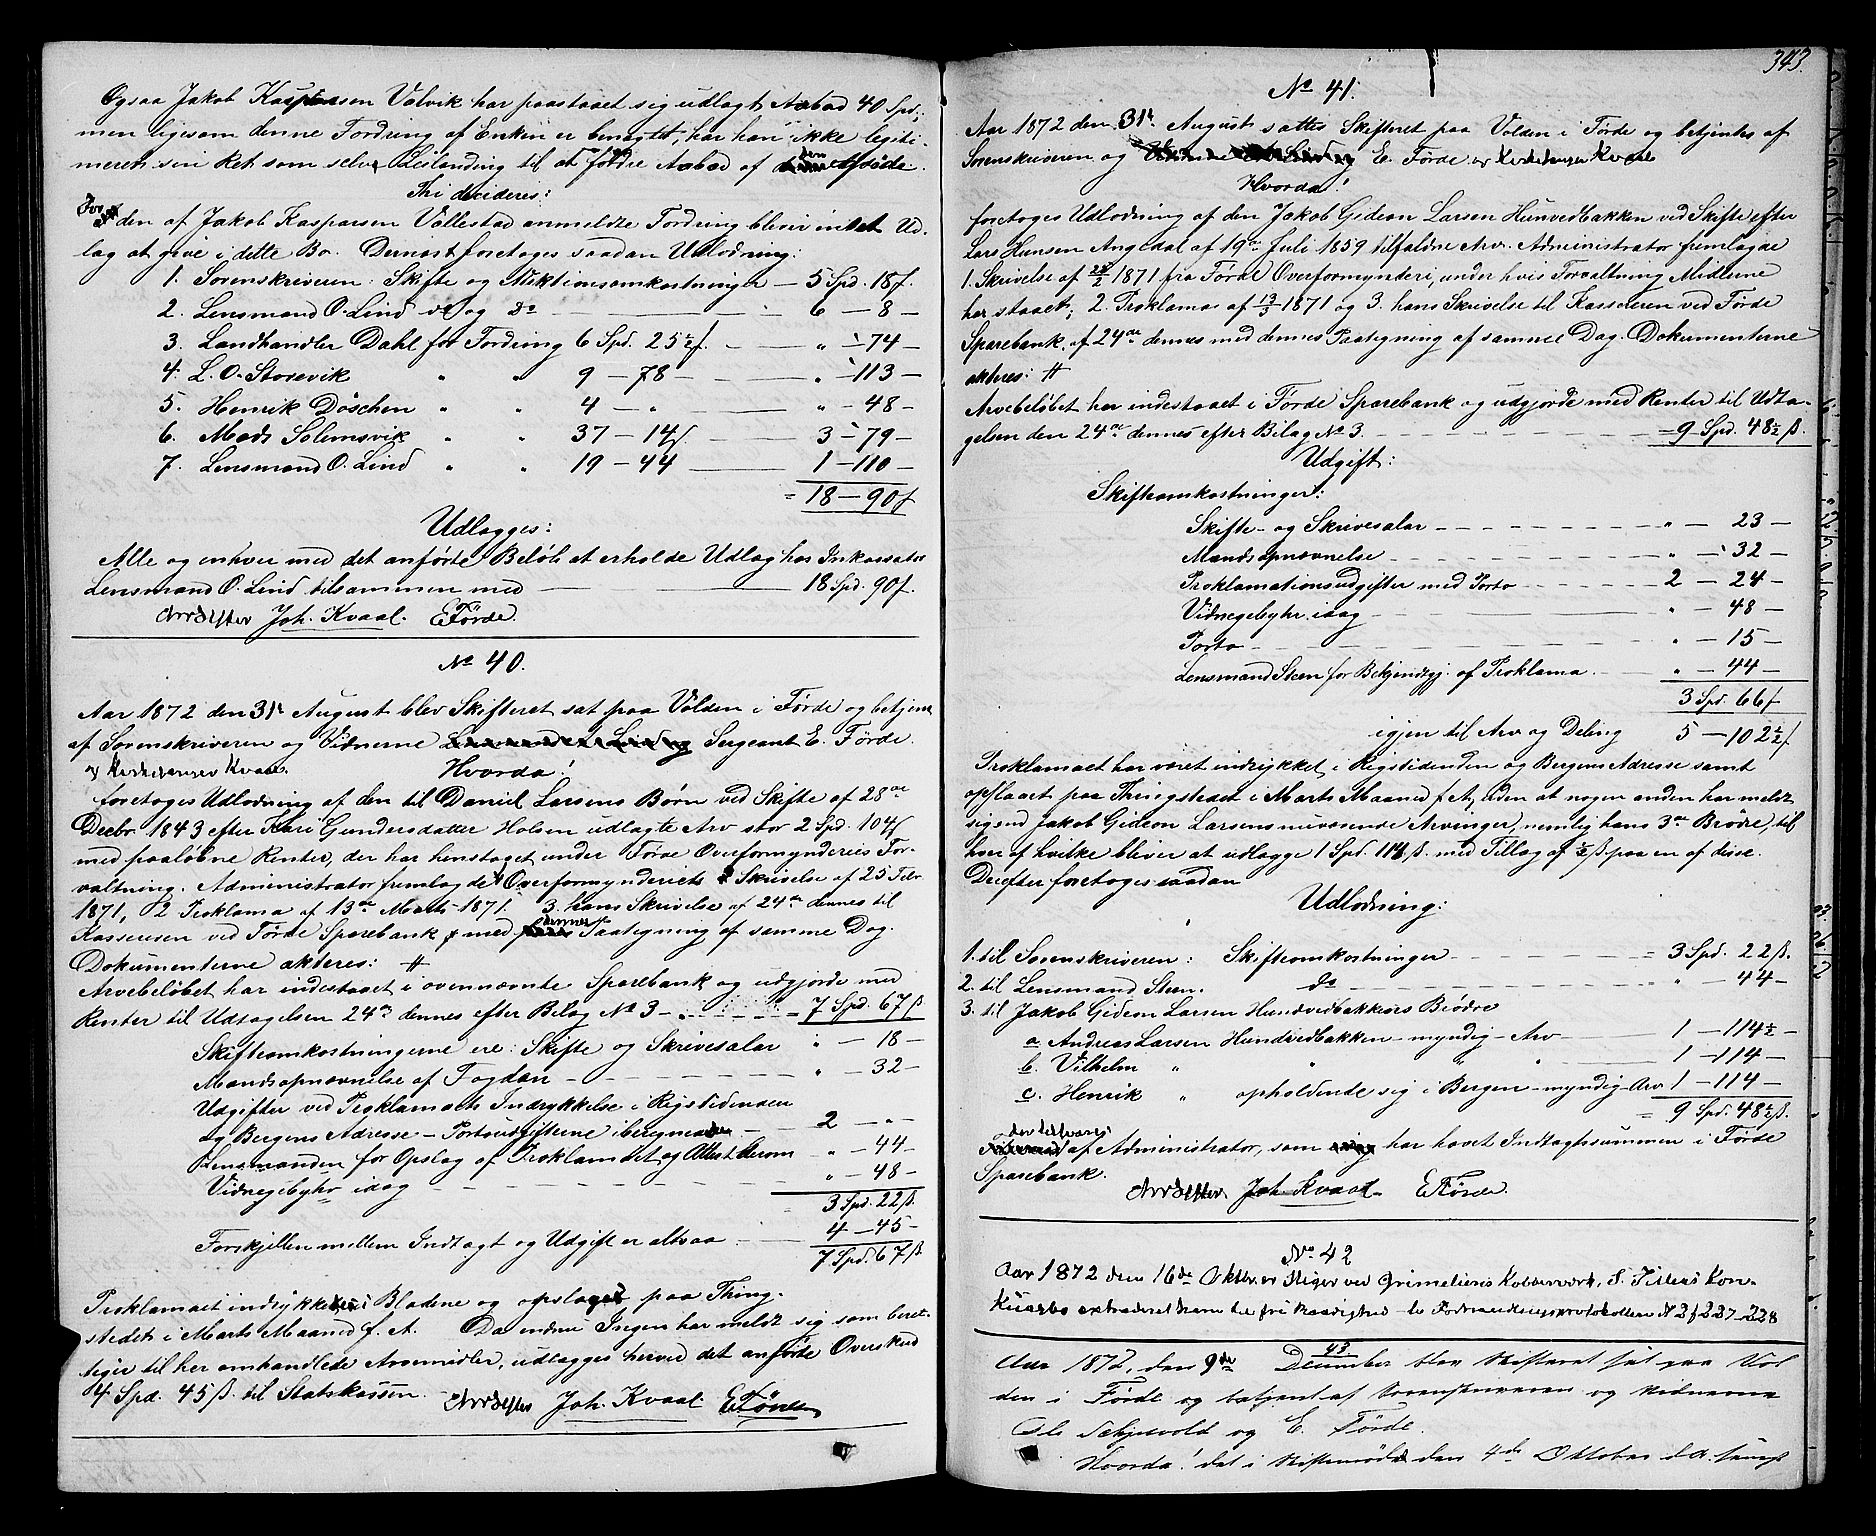 Ogsaa Jakob Kaspersen Valvik har paastaaet sig udlagt Aabod 40 Spd;
men ligesom denne Fordring af Enken er benegtet, har han ikke legiti-
meret sin Ret som selv Leilanding til at fordre Aabod af den afdøde.
Thi decideres:
For den af Jakob Kaspersen Vallestad anmeldte Fordring bliver intet Ud-
lag at give i dette Bo. Dernæst foretoges saadan Udlodning:
1. Sorenskriveren: Skifte og Auktionsomkostninger — 5 Spd. 18 ſ.
2. Lensmand O. Lind do og do — 6 — 8 —
3. Landhandler Dahl for Fordring 6 Spd. 25½ ſ. — " — 74 —
4. L. O. Storevik " " 9 — 78 — — " — 113 —
5. Henrik Döschen " " 4 — " — — " — 48 —
6. Mads Solemsvik " " 37 — 14 ſ. — 3 — 79 —
7. Lensmand O. Lind " " 19 — 44 — 1 — 110 —
= 18 — 90 ſ
Udlægges:
Alle og enhver med det anførte Beløb at erholde Udlæg hos Inkassator
Lensmand O. Lind tilsammen med — 18 Spd. 90 ſ.
Joh. Kvaal. E Førde.
No 40.
Aar 1872 den 31te August blev Skifteret sat paa Volden i Førde og betjent
af Sorenskriveren og Vidnerne Sergeant E. Førde
og Kirkesanger Kvaal.
Hvorda!
foretoges Udlodning af den til Daniel Larsens Børn ved Skifte af 28de
Decbr. 1843 efter Kari Gundersdatter Holsen udlagte Arv stor 2 Spd. 104 ſ
med paaløbne Renter, der har henstaaet under Førde Overformynderies For-
valtning. Administrator fremlagde 1 Overformynderiets Skrivelse af 25 Febr
1871, 2 Proklama af 13de Marts 1871. 3. hans Skrivelse af 24de dennes til
Kassereren ved Førde Sparebank med dennes Paategning af samme Dag.
Dokumenterne akteres: #
Arvebeløbet har indestaaet i ovennævnte Sparebank og udgjorde med
Renter til Udtagelsen 24de dennes efter Bilag No 3 — 7 Spd. 67 ß
Skifteomkostningerne ere: Skifte og Skrivesalær " — 18 —
Mandsopnævnelse af Fogden — " — 32 —
Udgifter ved Proklamaets Indrykkelse i Rigstidenden
og Bergens Adresse — Portoudgifterne iberegnede — 2 — " —
Lensmanden for Opslag af Proklamaet og Attest herom " — 44 —
Vidnegebyhr idag — " — 48 —
3 Spd. 22 ß
Forskjellen mellem Indtægt og Udgift er altsaa — 4 — 45 —
7 Spd. 67 ß
Proklamaet indrykket i Bladene og opslaget paa Thing-
stedet i Marts Maaned f. A. Da endnu Ingen har meldt sig som beret-
tiget til her omhandlede Arvemidler, udlægges herved det anførte Overskud
4 Spd. 45 ß. til Statskassen.
Joh. Kvaal. E Førde
343.
No 41.
Aar 1872 den 31te August sattes Skifteret paa Volden i Førde og betjentes af
Sorenskriveren og E. Førde og Kirkesanger Kvaal
Hvorda!
foretoges Udlodning af den Jakob Gideon Larsen Hunvedbakken ved Skifte efter
Lars Hansen Angedal af 19de Juli 1859 tilfaldne Arv. Administrator fremlagde
1. Skrivelse af 25/2 1871 fra Førde Overformynderi, under hvis Forvaltning Midlerne
har staaet; 2. Proklama af 13/3 1871 og 3. hans Skrivelse til Kassereren ved Førde
Sparebank af 24de dennes med dennes Paategning af samme Dag. Dokumenterne
akteres: #
Arvebeløbet har indestaaet i Førde Sparebank og udgjorde med Renter til Udta-
gelsen den 24de dennes efter Bilag No 3. — 9 Spd. 48½ ß.
Udgift:
Skifteomkostninger:
Skifte- og Skrivesalær — " — 23 —
Mandsopnævnelse — " — 32 —
Proklamationsudgifter med Porto — 2 — 24 —
Vidnegebyhr idag — " — 48 —
Porto — " — 15 —
Lensmand Steen for Bekjendtgj. af Proklama. — " — 44 —
3 Spd. 66 ſ
igjen til Arv og Deling 5 — 102½ ſ.
Proklamaet har været indrykket i Rigstidenden og Bergens Adresse samt
opslaaet paa Thingstedet i Marts Maaned f. A, uden at nogen anden har meldt
sig end Jakob Gideon Larsens nuværende Arvinger, nemlig hans 3de Brødre, til
hver af hvilke bliver at udlægge 1 Spd. 114 ß. med Tillæg af ½ ß paa en af disse.
Derefter foretoges saadan
Udlodning:
1. til Sorenskriveren: Skifteomkostninger — = 3 Spd. 22 ß.
2. til Lensmand Steen. do — " — 44 —
3. til Jakob Gideon Larsen Hundvedbakkens Brødre
a. Andreas Larsen Hundvedbakken — myndig — Arv — 1 — 114½ —
b. Vilhelm " " " — 1 — 114 —
c. Henrik " opholdende sig i Bergen — myndig — Arv 1 — 114 —
= 9 Spd. 48½ ß.
af Administrator, som har hævet Indtægtssummen i Førde
Sparebank.
Joh. Kvaal. E Førde.
No 42
Aar 1872 den 16de Oktbr. er Stiger ved Grimeliens Kobberværk, S. Kon-
kursbo extraderet ham til fri Raadighed
43
Aar 1872, den 9de December blev Skifteret sat paa Vol
den i Førde og betjent af Sorenskriveren og Vidnerne
Ole og E. Førde.
Hvorda! det i Skiftemøde den 4de Oktober d. A.